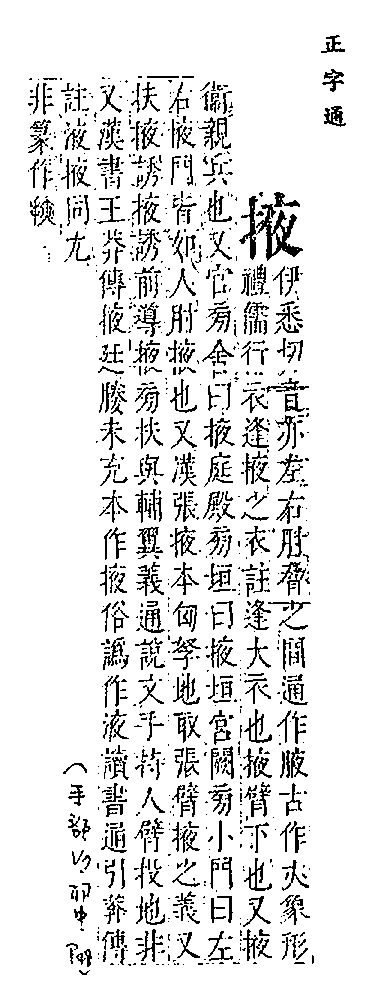 正字通
掖
伊悉切音亦左右肘脅之間通作腋古作亦象形
禮儒行衣逢掖之衣註逢大衣也掖臂下也又掖
衞親兵也又官旁舍曰掖庭殿旁垣曰掖垣宮闕旁小門曰左
右掖門皆如人肘掖也又漢張掖本匈奴地取張臂掖之義又
扶掖誘掖誘前導掖旁扶與輔翼義通說文手持人臂投地非
又漢書王莽傳掖廷媵未充本作掖俗譌作液讀書通引莽傳
註液掖同尤
非篆作
(手部